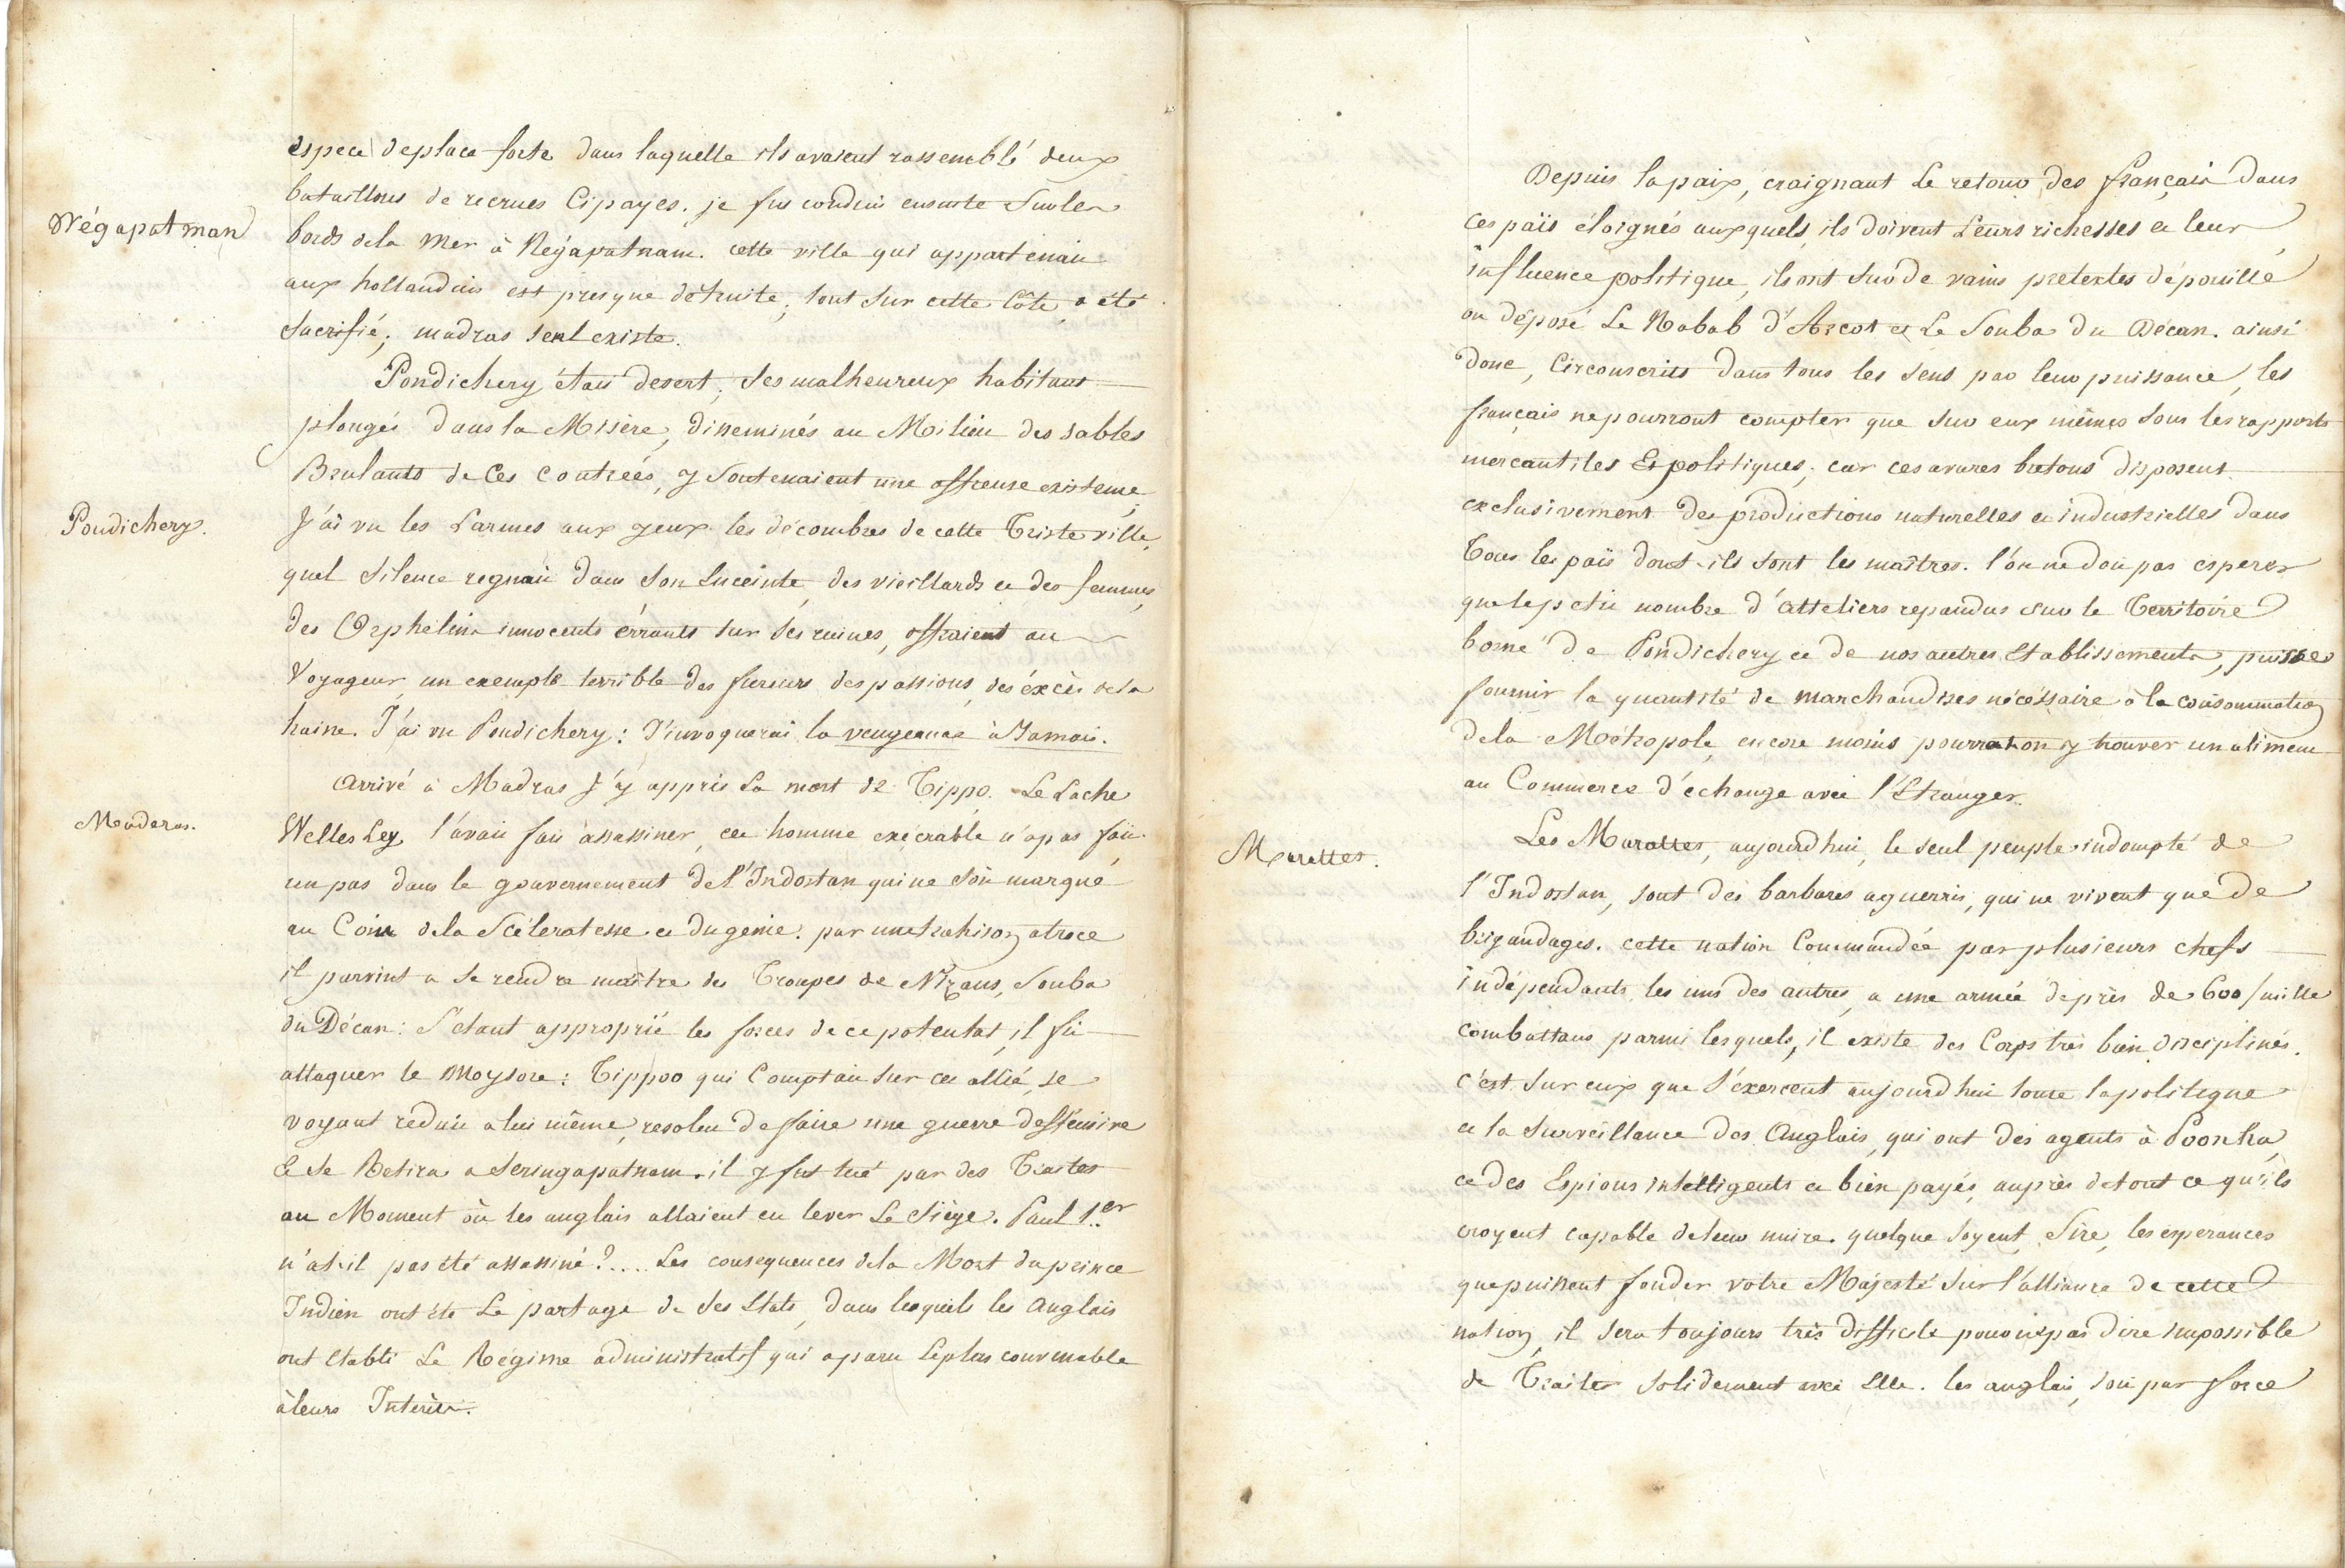 espece deplace forte dans laquelle ils avaient rassemblé deux
bataillons de recrues Cipayes. je fus conduis ensuite Surles
Négapatman
bords dela Mer à Négapatnam. cette ville qui appartenait
aux hollandais est presque détruite; tout sur cette Côte a été
Sacrifié; madras seul existe.
Pondichery était desert, ses malheureux habitans
plongés dans la Misère, disseminés au Milieu des sables
Brulants de Ces Contrées, y Soutenaient une affreuse existence
Pondichery.
J'ai vu les Larmes aux yeux les décombres de cette Triste ville,
quel silence regnait dans son Enceinte, des vieillards et des femmes,
des Orphelins innocents érrants sur ses ruines, offraient au
Voyageur un exemple terrible des fureurs des passions, des éxcès dela
haine. J'ai vu Pondichery: J'invoquerai la vengeance à Jamais.
Arrivé à Madras J'y appris La mort de Tippo. Le Lache
Maderas.
WellesLey l'avait fait assassiner, cet homme exécrable n'apas fait
un pas dans le gouvernement de l'Indostan qui ne soit marqué
au Coin dela Scéleratesse et du genie. par une trahison atroce
il parvint a se rendre maître des Troupes de Nizans, Souba
du Décan: S'étant approprié les forces de ce potentat, il fit
attaquer le Moysore: Tippoo qui Comptait sur cet allié, se
voyant reduit a lui même, resolut de faire une guerre deffensive
Et se Retira a Seringapatnam. il y fut tué par des Traites
au Moment où les anglais allaient en lever Le Siège. Paul 1.er
n'at-il pas été assassiné?.... Les consequences dela Mort du prince
Indien ont été Le partage de ses Etats, dans lesquels les Anglais
ont Etabli Le Régime administratif qui aparu Leplus convenable
àleurs Intérêts.
Depuis lapaix, craignant Le retour des français dans
ces païs éloignés auxquels ils doivent Leurs richesses et leur
influence politique, ils ont sur de vains pretextes dépouillé
ou déposé Le Nabab d'Arcot et Le Souba du Décan. ainsi
donc, Circonscrits dans tous les sens par leur puissance, les
français ne pourront compter que sur eux mêmes sous les rapports
mercantiles Et politiques; car ces avares bretons disposent
exclusivement des productions naturelles et industrielles dans
Tous les païs dont ils sont les maîtres. l'on ne doit pas esperer
que le petit nombre d'atteliers repandus sur le Territoire
borné de Pondichery et de nos autres Etablissements, puisse
fournir la quantité de marchandises nécéssaire à la consommation
dela Métropole, encore moins pourraton y trouver un aliment
au Commerce d'échange avec l'Etranger.
Les Marattes, aujourd'hui, le seul peuple indompté de
Marattes.
l'Indostan, sont des barbares aguerris, qui ne vivent que de
brigandages. cette nation Commandée par plusieurs chefs
indépendants les uns des autres, a une armée de près de 600/mille
combattans parmi lesquels, il existe des Corps très bien disciplinés.
c'est sur eux que s'éxercent aujourd'hui toute lapolitique
et la Surveillance des Anglais, qui ont des agents à Poonha,
et des Espions intélligents et bien payés, auprès detout ce qu'ils
croyent capable deleur nuire. quelque soyent, Sire, les esperances
que puissent fonder votre Majesté sur l'alliance de cette
nation, il sera toujours très difficile pour ne pas dire impossible
de Traiter solidement avec Elle. les anglais, soit par force